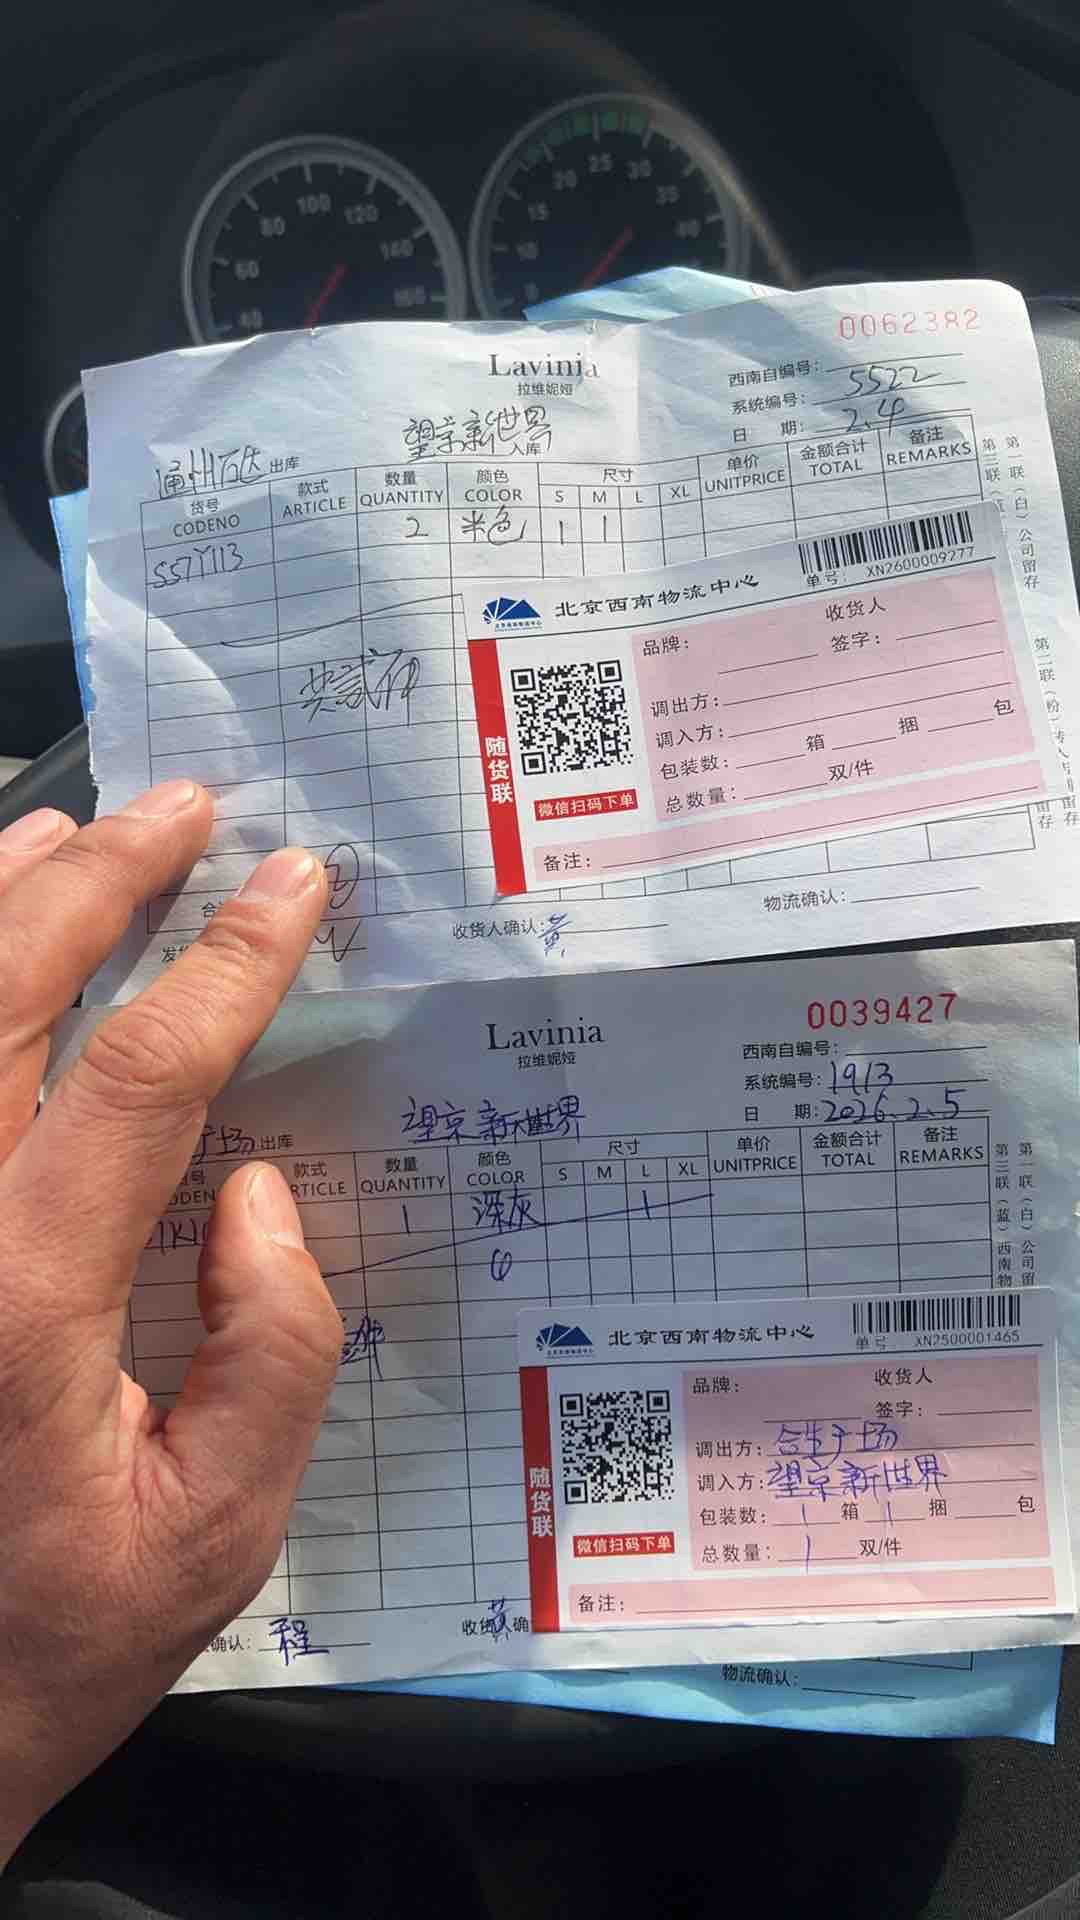 80 100 120 140 160
60
40
10 15 20 25 30 35 40
0062382
Lavinia
拉维妮娅
西南自编号:
系统编号: 5522
日 期: 2.4
通州万达 出库
望京新世界 入库
货号 CODENO
款式 ARTICLE
数量 QUANTITY
颜色 COLOR
尺寸
S M L XL
单价 UNITPRICE
金额合计 TOTAL
备注 REMARKS
S57Y113 2 米色 1 1
共贰件
第一联(白)公司留存
第二联(粉)
第三联(蓝)
北京西南物流中心
单号: XN2600009277
随货联
微信扫码下单
品牌:
收货人
签字:
调出方:
调入方:
包装数: 箱 捆 包
总数量: 双/件
备注:
②
收货人确认: 黄
物流确认:
0039427
Lavinia
拉维妮娅
西南自编号:
系统编号: 1913
日 期: 2026.2.5
广场 出库
望京新世界
款式 RTICLE
数量 QUANTITY
颜色 COLOR
尺寸
S M L XL
单价 UNITPRICE
金额合计 TOTAL
备注 REMARKS
1 深灰 1
第一联(白)公司留
第三联(蓝)西南物
北京西南物流中心
单号 XN2500001465
随货联
微信扫码下单
品牌:
收货人
签字:
调出方: 合生广场
调入方: 望京新世界
包装数: 1 箱 1 捆 包
总数量: 1 双/件
备注:
确认: 程
收货 确 黄
物流确认: